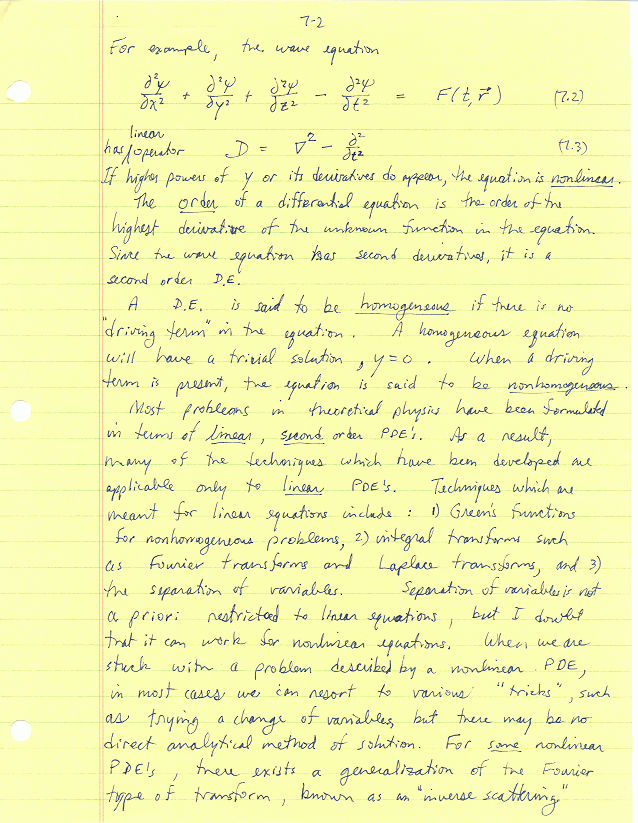 7-2
For example, the wave equation
∂²ψ/∂x² + ∂²ψ/∂y² + ∂²ψ/∂z² − ∂²ψ/∂t² = F(t, r⃗) (7.2)
linear
has/operator D = ∇² − ∂²/∂t² (7.3)
If higher powers of y or its derivatives do appear, the equation is nonlinear.
The order of a differential equation is the order of the
highest derivative of the unknown function in the equation.
Since the wave equation has second derivatives, it is a
second order D.E.
A D.E. is said to be homogeneous if there is no
"driving term" in the equation. A homogeneous equation
will have a trivial solution, y=0. When a driving
term is present, the equation is said to be nonhomogeneous.
Most problems in theoretical physics have been formulated
in terms of linear, second order PDE's. As a result,
many of the techniques which have been developed are
applicable only to linear PDE's. Techniques which are
meant for linear equations include: 1) Green's functions
for nonhomogeneous problems, 2) integral transforms such
as Fourier transforms and Laplace transforms, and 3)
the separation of variables. Separation of variables is not
a priori restricted to linear equations, but I doubt
that it can work for nonlinear equations. When we are
stuck with a problem described by a nonlinear PDE,
in most cases we can resort to various "tricks", such
as trying a change of variables, but there may be no
direct analytical method of solution. For some nonlinear
PDE's, there exists a generalization of the Fourier
type of transform, known as an "inverse scattering"